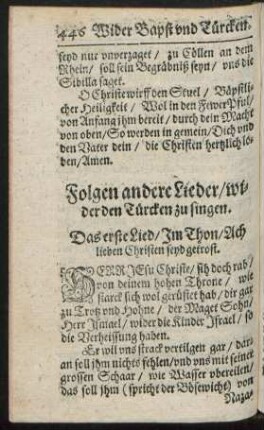 446 Wider Bapst vnd Türcken.
seyd nur vnverzaget / zu Cöllen an dem
Rhein / soll sein Begräbniß seyn / vns die
Sibilla saget.
O Christe wirff den Stuel / Bäpstli-
cher Heiligkeit / Wol in den Fewer Pful /
von Anfang jhm bereit / durch dein Macht
von oben / So werden in gemein / Dich vnd
den Vater dein / die Christen hertzlich lo-
ben / Amen.
Folgen andere Lieder / wi-
der den Türcken zu singen.
Das erste Lied / Jm Thon / Ach
lieben Christen seyd getrost.
HERR JEsu Christe / sih doch rab /
von deinem hohen Throne / wie
starck sich wol gerüstet hab / dir gar
zu Trotz vnd Hohne / der Maget Sohn /
Herr Jsmael / wider die Kinder Jsrael / so
die Verheissung haben.
Er wil vns strack vertilgen gar / dar-
an soll jhm nichts fehlen / vnd vns mit seiner
grossen Schaar / wie Wasser vbereilen /
das soll jhm (spricht der Bösewicht) von
Naza-